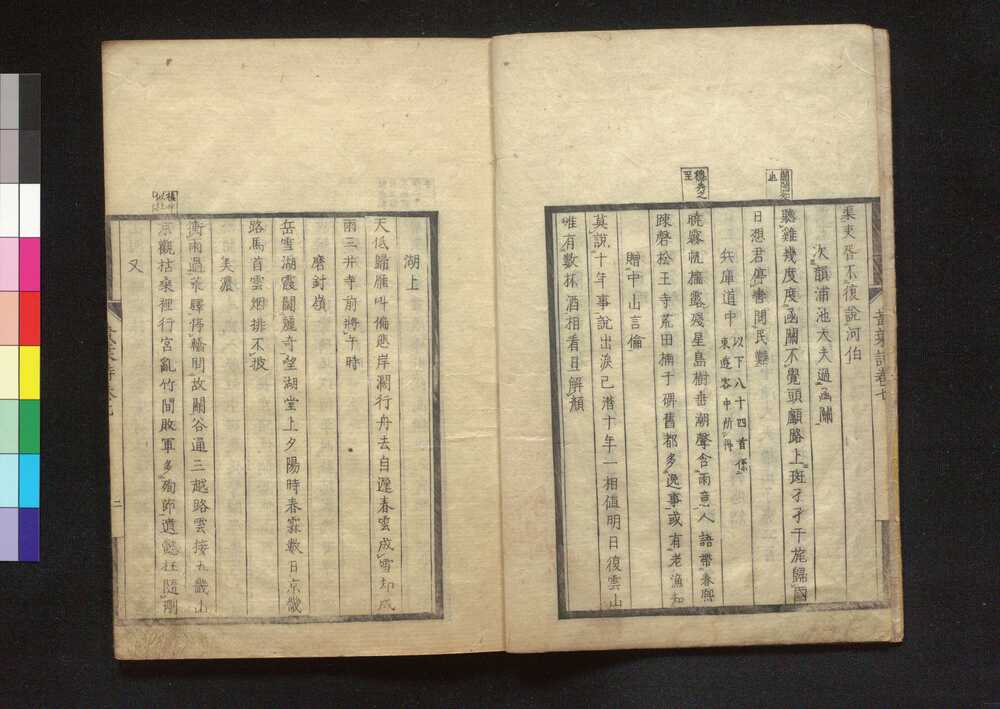 渠吏咨不復說河伯
次韻浦池大夫過函關
聽雞幾度度函關不覺頭顱路上斑孑孑干旄歸國
日想君停書問民艱
兵庫道中 以下八十四首係東遊客中所得
曉霧帆檣露殘星島樹垂潮聲含雨意人語帶春熙
踈磬松王寺荒田楠子碑舊都多逸事或有老漁知
贈中山言倫
莫說十年事說出淚已潸十年一相値明日復雲山
唯有數杯酒相看且解顏
黃葉詩卷七
湖上
天低歸雁叫偏悲岸濶行舟去自遲春雲成雪却成
雨三井寺前將午時
磨封嶺
岳雪湖霞鬪䕺奇望湖堂上夕陽時春霖數日京畿
路馬首雲烟排不披
美濃
衝雨過荒驛停輪問故關谷通三越路雲接九畿山
京觀枯桑裡行宮亂竹間敗軍多殉節遺
又
二